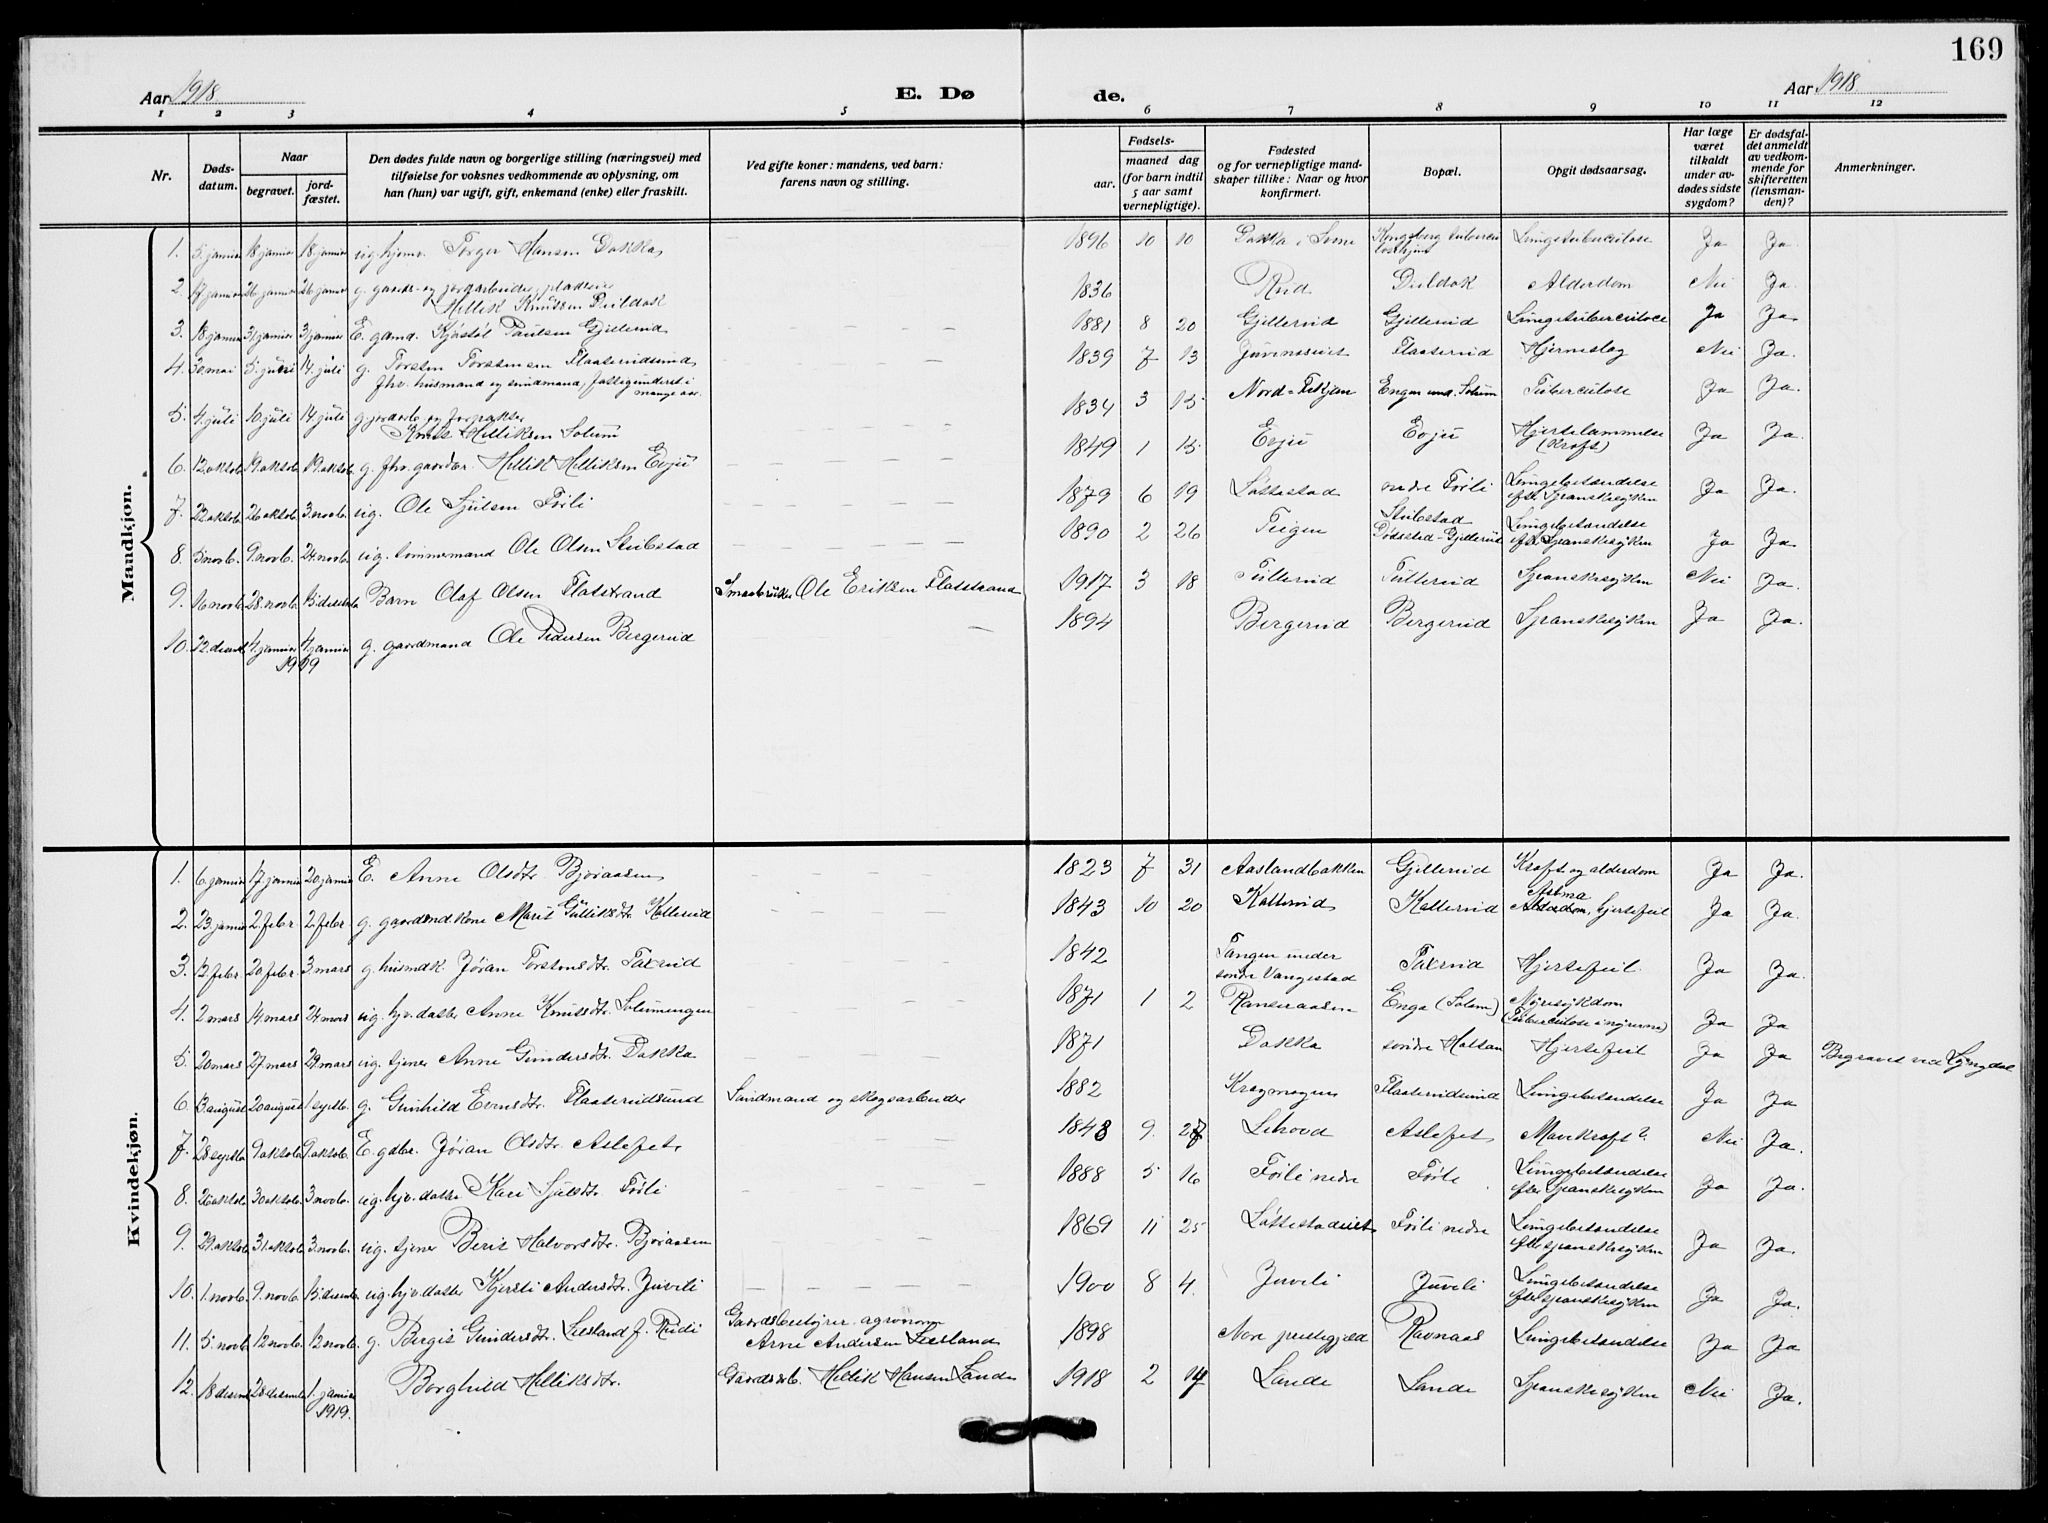 169
Aar 1918
E. Dø
de.
Aar 1918
1 2 3 4 5 6 7 8 9 10 11 12
Nr.
Døds-
datum.
Naar
begravet.
jord-
fæstet.
Den dødes fulde navn og borgerlige stilling (næringsvei) med
tilføielse for voksnes vedkommende av oplysning, om
han (hun) var ugift, gift, enkemand (enke) eller fraskilt.
Ved gifte koner: mandens, ved barn:
farens navn og stilling.
Fødsels-
aar.
maaned dag
(for barn indtil
5 aar samt
vernepligtige).
Fødested
og for vernepligtige mand-
skaper tillike: Naar og hvor
konfirmert.
Bopæl.
Opgit dødsaarsag.
Har læge
været
tilkaldt
under av-
dødes sidste
sygdom?
Er dødsfal-
det anmeldt
av vedkom-
mende for
skifteretten
(lensman-
den)?
Anmerkninger.
Mandkjøn.
1. 5. januar 18 januar 18. januar ug. hjemv. Torger Hansen Dakka 1896 10 10 Dakka i Kongsberg tubercu- Lungetuberculose Ja Ja.
loschjem
2. 17 januar 26. januar 26. januar g. gaards- og jordarbeider, pladseier 1836 Rud Duldok Alderdom Nei Ja.
Hellik Knutsen Duldok
3. 18. januar 31. januar 3. januar E. gamd. Kjøstøl Paulsen Gjellerud 1881 8 20 Gjellerud Gjellerud Lungetuberculose Ja Ja.
4. 30. mai 5. juni 14. juli g. Torsten Torstensen Flaaterudsund 1839 7 13 Flaaterud Hjerneslag Nei Ja.
fhv. husmand og sundmand, fattigunderst. i
mange aar.
5. 4. juli 10. juli 14 juli g. jordarb. og forpakter 1834 3 15 Nord-Tekjen Engen und. Solum Tuberculose Ja Ja.
Knut Helliksen Solum
6. 12. oktob. 19. oktob. 19. oktob. g. fhv. gaardbr. Hellik Helliksen Evju 1849 1 15. Evju Evju Hjertelammelse Ja Ja.
(Kræft)
7. 22 oktob. 26 oktob. 3. novb. ug. Ole Sjulsen Førli 1879 6 19 Løttestad nedre Førli Lungebetændelse Ja Ja.
efter Spanskesyken
8. 3 novb. 9. novb. 24. novb. ug. tømmermand Ole Olsen Stubstad 1890 2 26 Teigen Stubstad Lungebetændelse Ja Ja.
Dødssted-Gjellerud efter Spanskesyken
9. 16 novb. 28. novb. 15 decemb. Barn Olaf Olsen Flatstrand Smaabruker Ole Eriksen Flatstrand 1917 3 18 Tullerud Tullerud Spanskesyken Nei Ja.
10. 22. decemb. 4. januar 4. januar g. gaardmand Ole Pedersen Bergerud 1894 Bergerud Bergerud Spanskesyken Ja Ja.
1919
Kvindekjøn.
1. 6. januar 17. januar 20. januar E. Anne Olsdtr. Bjøraasen 1823 7 31 Aaslandbakken Gjellerud Kræft og alderdom Ja Ja.
2. 23. januar 2. febr. 2. febr. g. gaardmdkone Marit Gulliksdtr Kallerud 1843 10 20 Kallerud Kallerud Astma Ja Ja.
Alderdom, hjertefeil
3. 12. febr. 20 febr. 3. mars g. husmdk. Jøran Torstensdtr. Taxrud 1842 Tangen under Taxrud Hjertefeil. Ja Ja.
søndre Vangestad
4. 2 mars 14. mars 24 mars ug. hjv. datter Anne Knutsdtr. Solumengen 1871 1 2 Ranviraasen Enga (Solum) Nyresykdom Ja Ja
(Tuberculose i nyrerne)
5. 20 mars 27. mars 29. mars ug. tjener Anne Gundersdtr. Dakka 1871 Dakka søndre Haltan Hjertefeil Ja Ja Begravet ved Lyngdal
6. 13. august 20 august 1 septb. g. Gunhild Evensdtr. Flaaterudsund Sundmand og skogsarbeider 1882 Kragmogen Flaaterudsund Lungebetændelse Ja Ja
7. 28 septb. 9. oktob. 9. oktob. E. gdbr. Jøran Olsdtr. Aslefet 1848 9. 27 Lihovd Aslefet Mavekræft? Nei Ja.
8. 26 oktob. 30 oktob. 3. novb. ug. hjv. datter Kari Sjulsdtr. Førli 1888 5 16 Førli nedre Førli Lungebetændelse Ja Ja.
efter Spanskesyken
9. 29. oktob. 31. oktob. 3. novb. ug. tjener Berit Halvorsdtr. Bjøraasen 1869 11 25 Løttestadeiet Førli nedre Lungebetændelse Ja Ja.
efter spanskesyken
10. 1. novb. 9. novb. 15. decemb. ug. hjv. datter Kjersti Andersdtr. Juveli 1900 8 4. Juveli Juveli Lungebetændelse Ja Ja.
efter spanskesyken
11. 5. novb. 12 novb. 12 novb. g. Bergit Gundersdtr. Lesland f. Rudi Gaardsbestyrer agronom 1898 Nore prestegjeld Ravnaas Lungebetændelse Ja Ja
Arne Andersen Lesland
12. 18 decemb. 28 decemb. 1. januar Borghild Helliksdtr. Gaardsarb. Hellik Hansen Lande 1918 2 14 Lande Lande Spanskesyken Nei Ja.
1919.